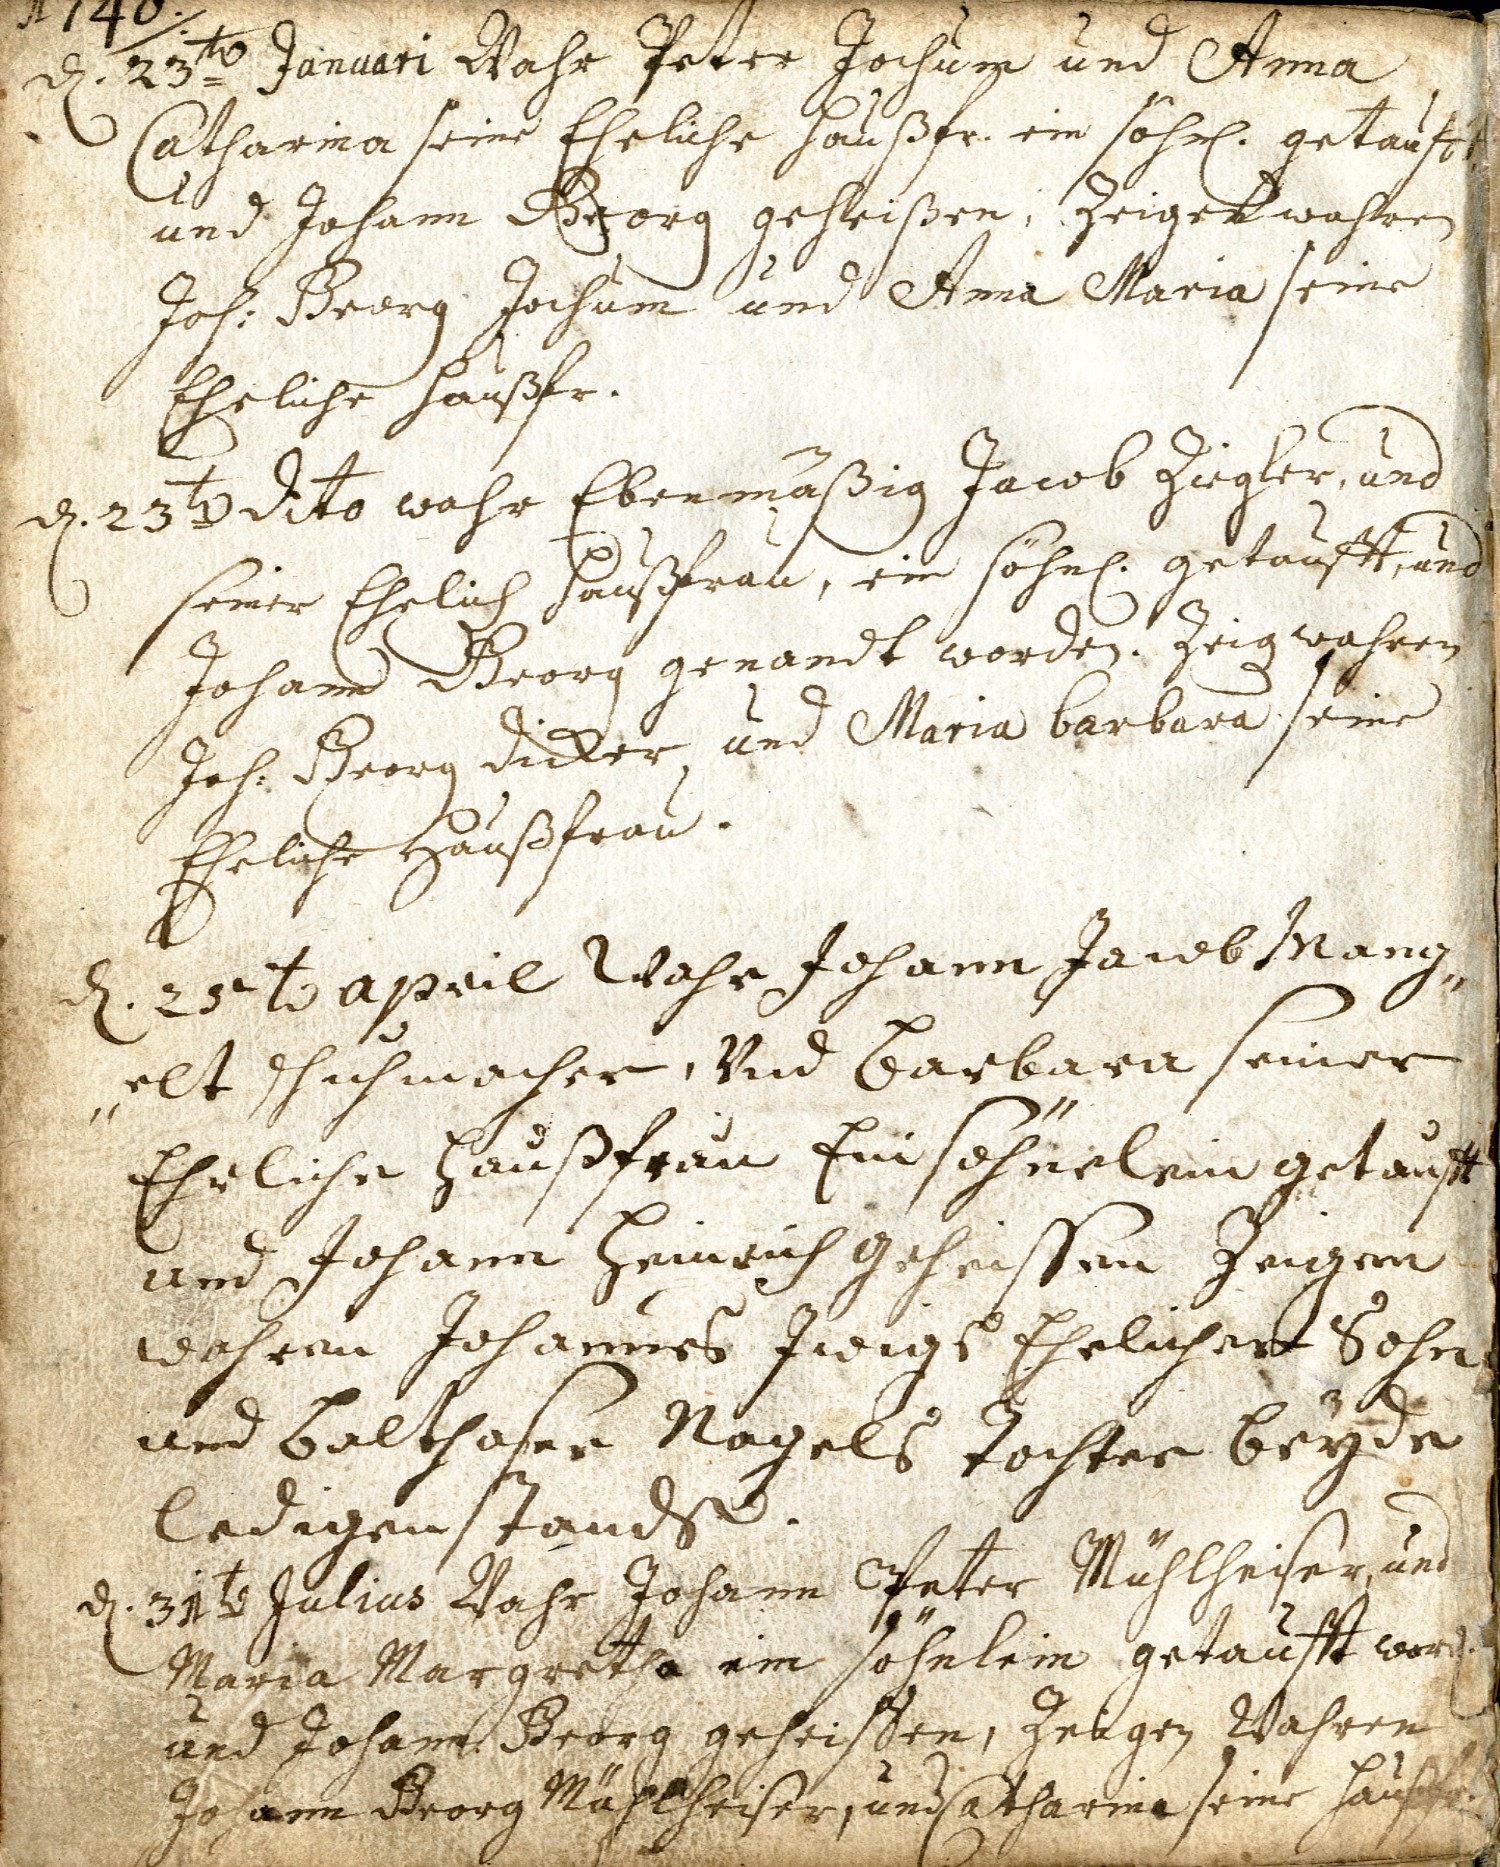 A 1740.
d. 23to Januari Wahr Peter Jochum und Anna
Catharina seine Eheliche haußfr. ein söhnl. getaufft
und Johann Georg geheißen, Zeigen wahren
Joh: Georg Jochum und Anna Maria seine
Eheliche haußfr.
d. 23to dito wahr Ebenmäßig Jacob Ziegler, und
seiner Ehelich haußfrau, ein söhnl. getaufft, und
Johann Georg genandt worden. Zeig wahren
Joh: Georg dicker, und Maria barbara seine
Eheliche Haußfrau.
d. 25to april Wahr Johann Jacob Mang„
„elt schuhmacher, Und barbara seiner
Ehelichen haußfrau Ein söhnelein getaufft
und Johann Heinrich geheissen Zeigen
wahren Johannes Ehelicher Sohn
und balthaser Nagels tochter beyde
ledigen stands.
d. 31to Julius Wahr Johann Peter Mühlheiser, und
Maria Margretha ein söhnlein getaufft word.
und Johann Georg geheissen, Zeugen Wahren
Johann Georg Mühlheiser, und Catharina seine haußfr.